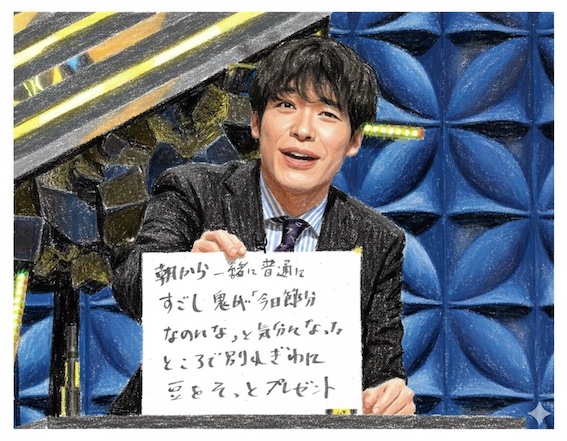 朝から一緒に普通に
すごし鬼が「今日節分
なのになっと気分になった
ところで別れぎわに
豆をそっとプレゼント